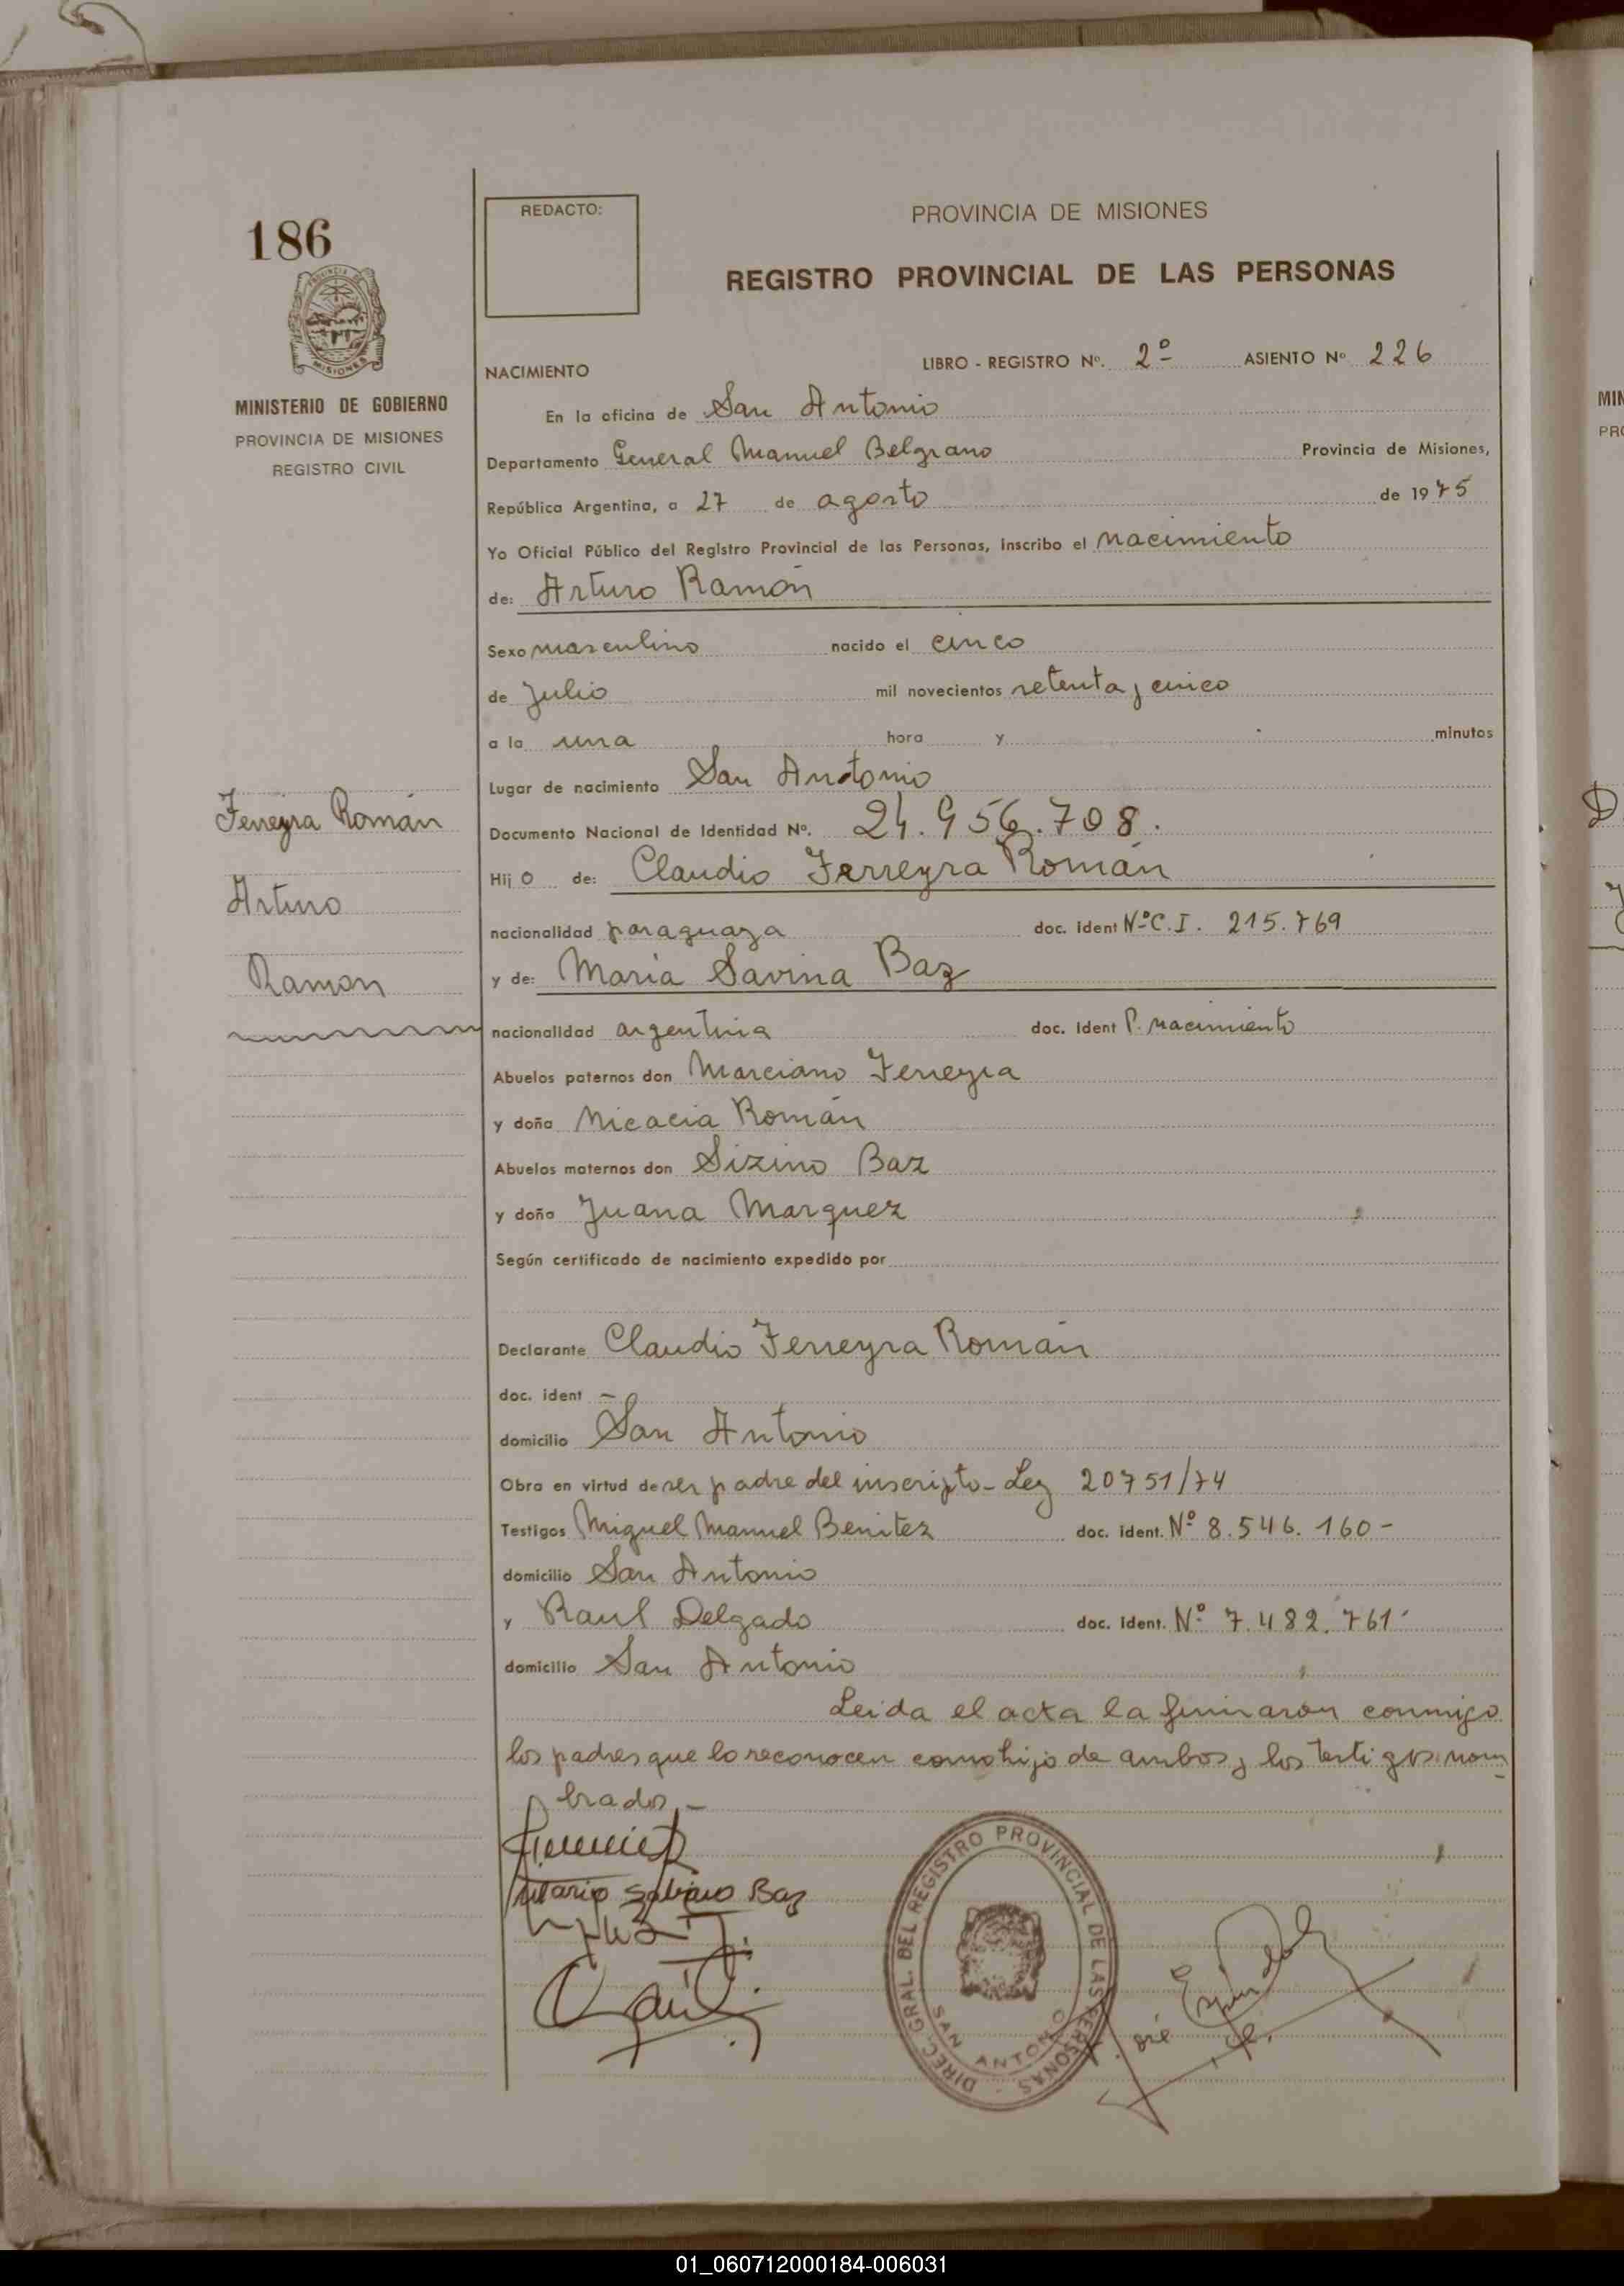 186
REDACTO:
PROVINCIA DE MISIONES
REGISTRO PROVINCIAL DE LAS PERSONAS
MINISTERIO DE GOBIERNO
PROVINCIA DE MISIONES
REGISTRO CIVIL
NACIMIENTO LIBRO - REGISTRO Nº. 2º ASIENTO Nº 226
En la oficina de San Antonio
Departamento General Manuel Belgrano Provincia de Misiones,
República Argentina, a 27 de agosto de 1975
Yo Oficial Público del Registro Provincial de las Personas, inscribo el nacimiento
de: Arturo Ramón
Sexo masculino nacido el cinco
de Julio mil novecientos setenta y cinco
a la una hora y minutos
Lugar de nacimiento San Antonio
Ferreyra Román
Arturo
Ramon
Documento Nacional de Identidad Nº. 24.956.708.
Hijo de: Claudio Ferreyra Román
nacionalidad paraguaya doc. ident NºC.I. 215.769
y de: Maria Savina Baz
nacionalidad argentina doc. ident P. nacimiento
Abuelos paternos don Marciano Ferreyra
y doña Nicacia Román
Abuelos maternos don Sizino Baz
y doña Juana Marquez
Según certificado de nacimiento expedido por
Declarante Claudio Ferreyra Román
doc. ident —
domicilio San Antonio
Obra en virtud de ser padre del inscripto - Ley 20751/74
Testigos Miguel Manuel Benitez doc. ident. Nº 8.546.160-
domicilio San Antonio
y Raul Delgado doc. ident. Nº 7.482.761
domicilio San Antonio
Leida el acta la firmaron conmigo
los padres que lo reconocen como hijo de ambos y los testigos nom
brados.-
Maria Sabino Baz
DIREC. GRAL. DEL REGISTRO PROVINCIAL DE LAS PERSONAS
SAN ANTONIO
01_060712000184-006031